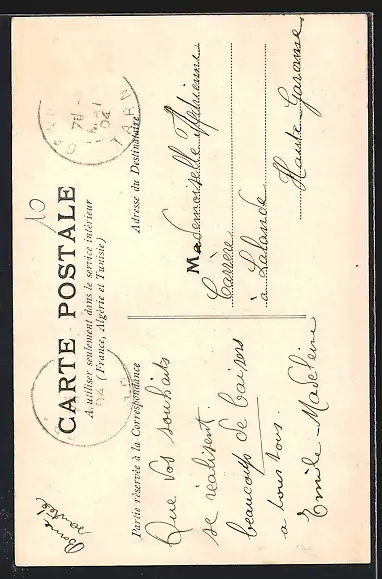 Bonne
santé
CARTE POSTALE
A utiliser seulement dans le service intérieur
(France, Algérie et Tunisie)
10
TARN
04
Partie réservée à la Correspondance
Que vos souhaits
se réalisent
beaucoup de baisers
a tous tous.
Emile - Madeleine
Adresse du Destinataire
Mademoiselle
Carrère
à Lalande
Haute-Garonne